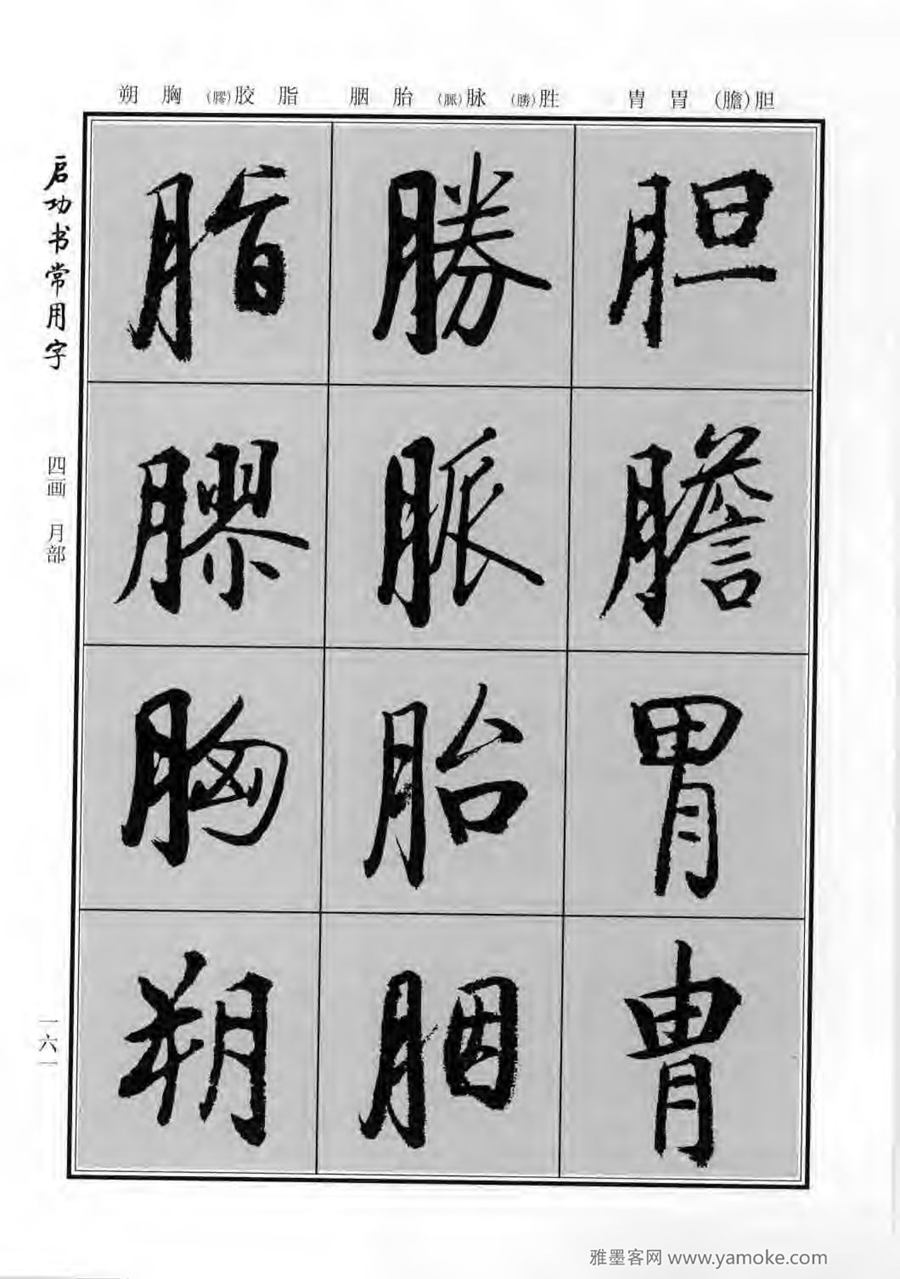 朔 胸 (膠)胶 脂 胭 胎 (脈)脉 (勝)胜 胄 胃 (膽)胆
启功书常用字
四画 月部
一六一
胆
膽
胃
胄
勝
脈
胎
胭
脂
膠
胸
朔
雅墨客网 www.yamoke.com